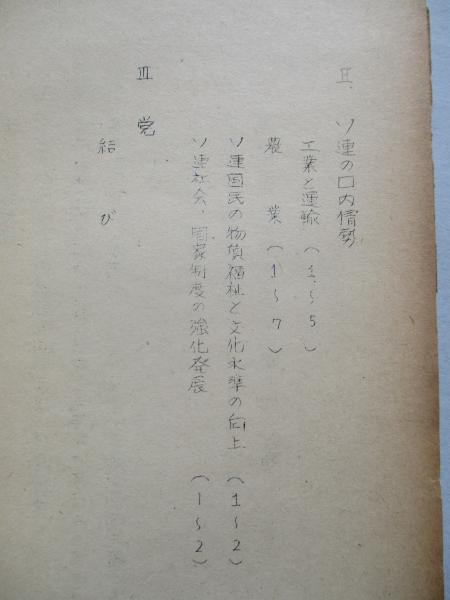 II ソ連の口内情勢
工業と運輸(1~5)
農業(1~7)
ソ連国民の物質福祉と文化水準の向上(1~2)
ソ連社会、国家制度の強化発展(1~2)
III 党
結び